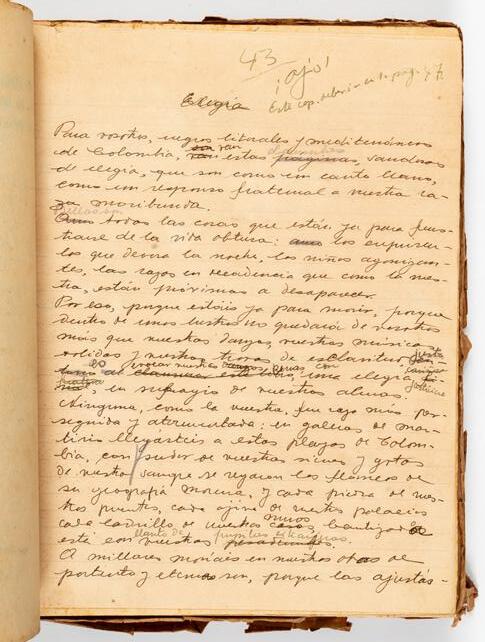 43
¡ojo!
Este cap. debe ir en la pag. 47.
Elegia
Para vosotros, negros litorales y mediterráneos
de Colombia, son van estas paginas, saudosas
de elegia, que son como un canto llano,
como un responso fraternal a nuestra ra-
za moribunda.
todas las cosas que están ya para frus-
trarse de la vida obtura: los crepúscu-
los que devora la noche, los niños agonizan-
tes, las razas en decadencia que como la nues-
tra, están próximas a desaparecer.
Por eso, porque estáis ya para morir, porque
dentro de unos lustros no quedará de vosotros
más que vuestras danzas, vuestras músicas
y nuestras horas de esclavitud, justo
es evocar nuestras penas con
una elegia
en sufragio de vuestras almas.
Ninguna, como la vuestra, fue raza más per-
seguida y atormentada: en galeras de mar-
tirio llegasteis a estas playas de Colom-
bia, con sudor de vuestras sienes y gotas
de vuestra sangre se regaron los flancos de
su geografía morena, y cada piedra de nues-
tros puentes, cada ojiva de nuestros palacios
cada ladrillo de nuestros muros, bautizado
está con llanto de pupilas
A millares moriais en nuestras obras de
portento y eternas son, porque las ajustás-